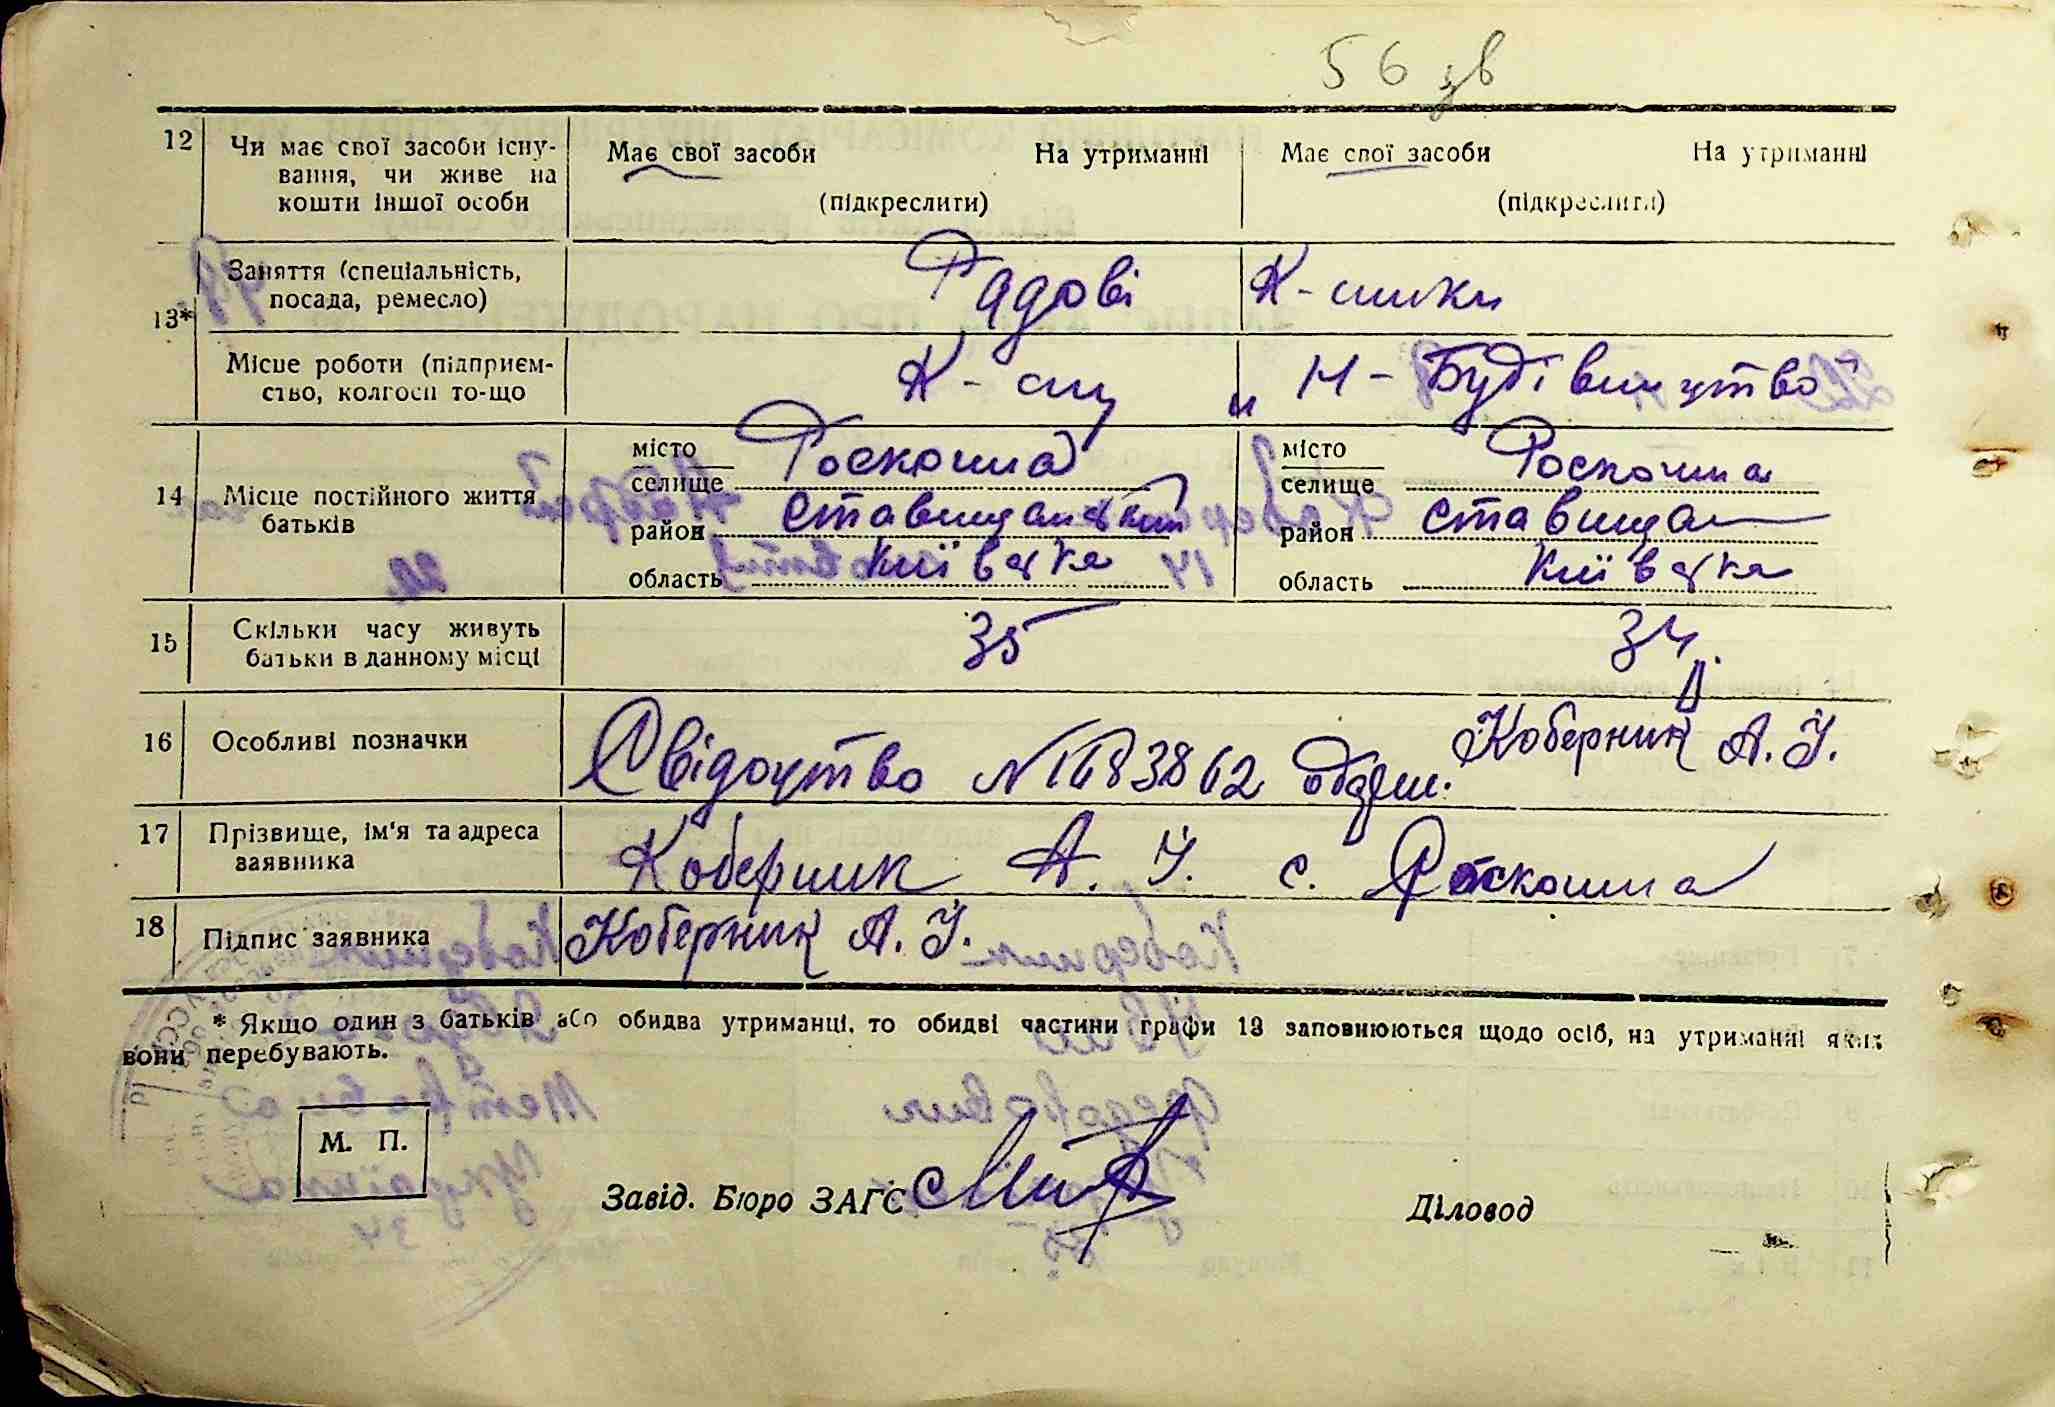 56 зв
12 Чи має свої засоби існу- Має свої засоби На утриманні Має свої засоби На утриманні
вання, чи живе на
кошти іншої особи (підкреслити) (підкреслити)
Заняття (спеціальність, Рядові К-сники
посада, ремесло)
13*
Місце роботи (підприєм- К-сп „Н-Будівництво"
ство, колгосп то-що
місто Роскошна місто Роскошна
селище селище
14 Місце постійного життя
батьків район Ставищанський район Ставищан
область Київська область Київська
15 Скільки часу живуть 35 34
батьки в данному місці
16 Особливі позначки Свідоцтво № 1683862 одерж. Коберник А. У.
17 Прізвище, ім'я та адреса Коберник А. У. с. Роскошна
заявника
18 Підпис заявника Коберник А. У.
* Якщо один з батьків або обидва утриманці, то обидві частини графи 13 заповнюються щодо осіб, на утриманні яких
вони перебувають.
М. П.
Завід. Бюро ЗАГС Діловод